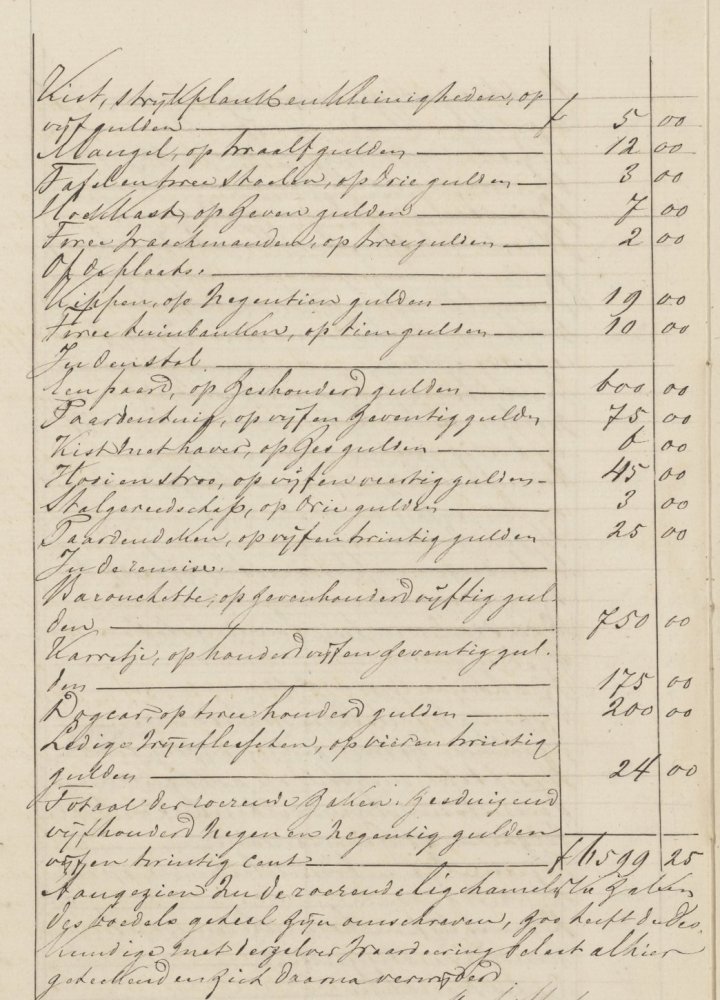 Kist, strijkplank en kleinigheden, op
vijf gulden f 5 00
Mangel, op twaalf gulden 12 00
Tafel en twee stoelen, op drie gulden 3 00
Hoekkast, op zeven gulden 7 00
Twee waschmanden, op twee gulden 2 00
Op de plaats.
Kippen, op negentien gulden 19 00
Twee tuinbanken, op tien gulden 10 00
In den stal.
Een paard, op zeshonderd gulden 600 00
Paardentuig, op vijf en zeventig gulden 75 00
Kist met haver, op zes gulden 6 00
Hooi en stroo, op vijf en veertig gulden 45 00
Stalgereedschap, op drie gulden 3 00
Paardendeken, op vijf en twintig gulden 25 00
In de remise.
Barouchette, op zevenhonderd vijftig gul-
den 750 00
Karretje, op honderd vijf en zeventig gul-
den 175 00
Dogcar, op twee honderd gulden 200 00
Ledige wijnflesschen, op vier en twintig
gulden 24 00
Totaal der roerende zaken. Zesduizend
vijfhonderd negen en negentig gulden
vijf en twintig cent f 6599 25
Aangezien nu de roerende ligchamelijke zaken
des boedels geheel zijn omschreven, zoo heeft de des-
kundige met derzelver waardeering belast alhier
geteekend en zich daarna verwijderd